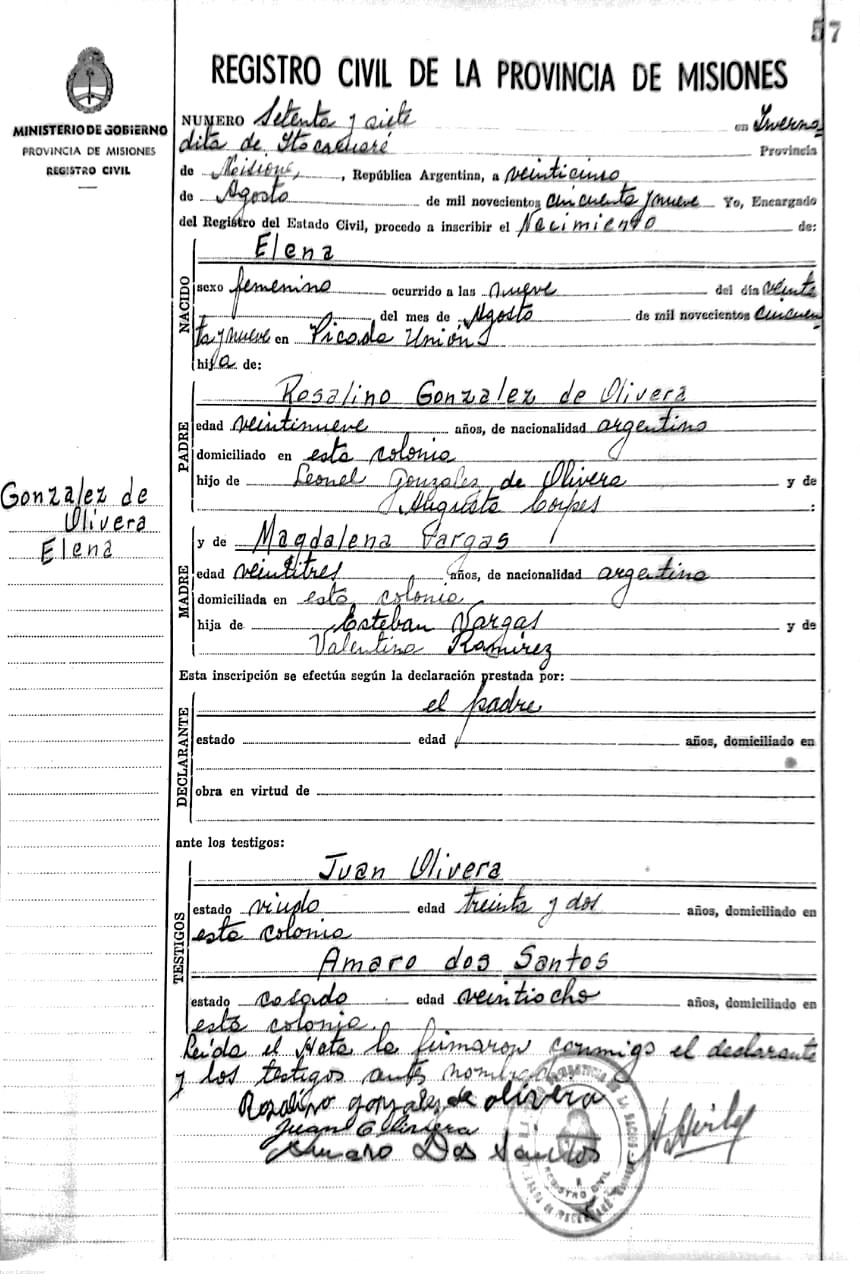 57
REGISTRO CIVIL DE LA PROVINCIA DE MISIONES
MINISTERIO DE GOBIERNO
PROVINCIA DE MISIONES
REGISTRO CIVIL
NUMERO Setenta y siete en Inverna
dita de Itacaruaré Provincia
de Misiones, República Argentina, a veinticinco
de Agosto de mil novecientos cincuenta y nueve Yo, Encargado
del Registro del Estado Civil, procedo a inscribir el Nacimiento de:
NACIDO
Elena
sexo femenino ocurrido a las nueve del día veinte
del mes de Agosto de mil novecientos cincuen
ta y nueve en Picada Unión
hija de:
PADRE
Rosalino Gonzalez de Olivera
edad veintinueve años, de nacionalidad argentino
domiciliado en esta colonia
hijo de Leonel Gonzales de Olivera y de
Augusta :
Gonzalez de
Olivera
Elena
MADRE
y de Magdalena Vargas
edad veintitres años, de nacionalidad argentina
domiciliada en esta colonia
hija de Esteban Vargas y de
Valentina Ramírez
Esta inscripción se efectúa según la declaración prestada por:
DECLARANTE
el padre
estado edad años, domiciliado en
obra en virtud de
ante los testigos:
TESTIGOS
Juan Olivera
estado viudo edad treinta y dos años, domiciliado en
esta colonia
Amaro dos Santos
estado casado edad veintiocho años, domiciliado en
esta colonia.
Leída el Acta la firmaron conmigo el declarante
y los testigos antes
Rosalino gonzales de olivera
Juan Olivera
Amaro Dos Santos
REGISTRO CIVIL